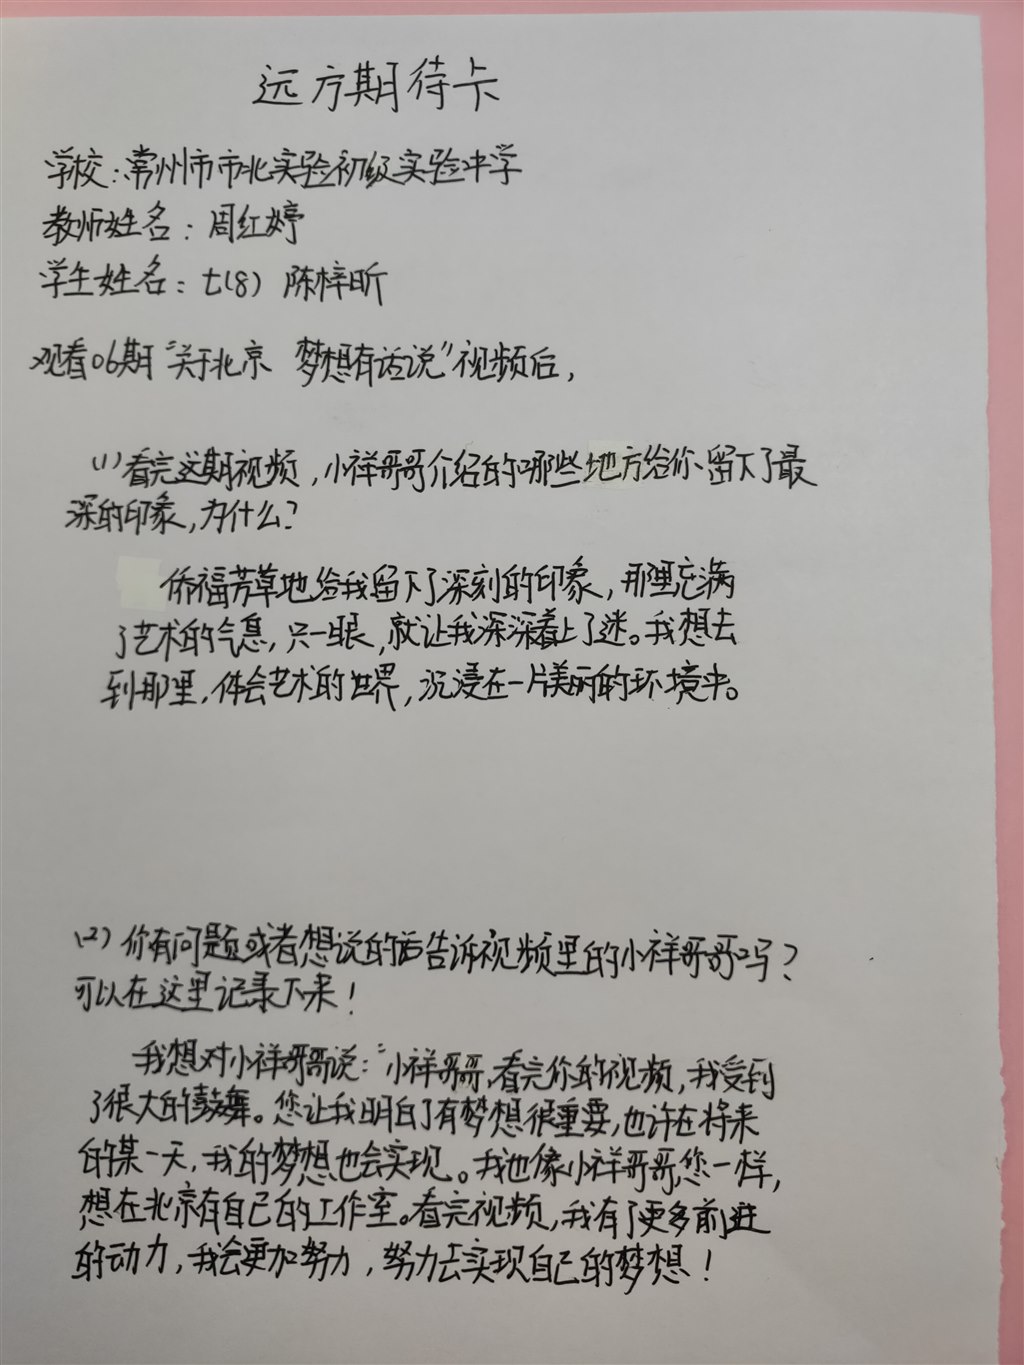 远方期待卡
学校:常州市市北实验初级实验中学
教师姓名:周红婷
学生姓名:七(8) 陈梓昕
观看06期“关于北京 梦想有话说”视频后,
(1)看完这期视频,小祥哥哥介绍的哪些地方给你留下了最
深的印象,为什么?
侨福芳草地给我留下了深刻的印象,那里充满
了艺术的气息,只一眼,就让我深深着上了迷。我想去
到那里,体会艺术的世界,沉浸在一片美丽的环境中。
(2)你有问题或者想说的话告诉视频里的小祥哥哥吗?
可以在这里记录下来!
我想对小祥哥哥说:“小祥哥哥,看完你的视频,我受到
了很大的鼓舞。您让我明白了有梦想很重要,也许在将来
的某一天,我的梦想也会实现。我也像小祥哥哥您一样,
想在北京有自己的工作室。看完视频,我有了更多前进
的动力,我会更加努力,努力去实现自己的梦想!